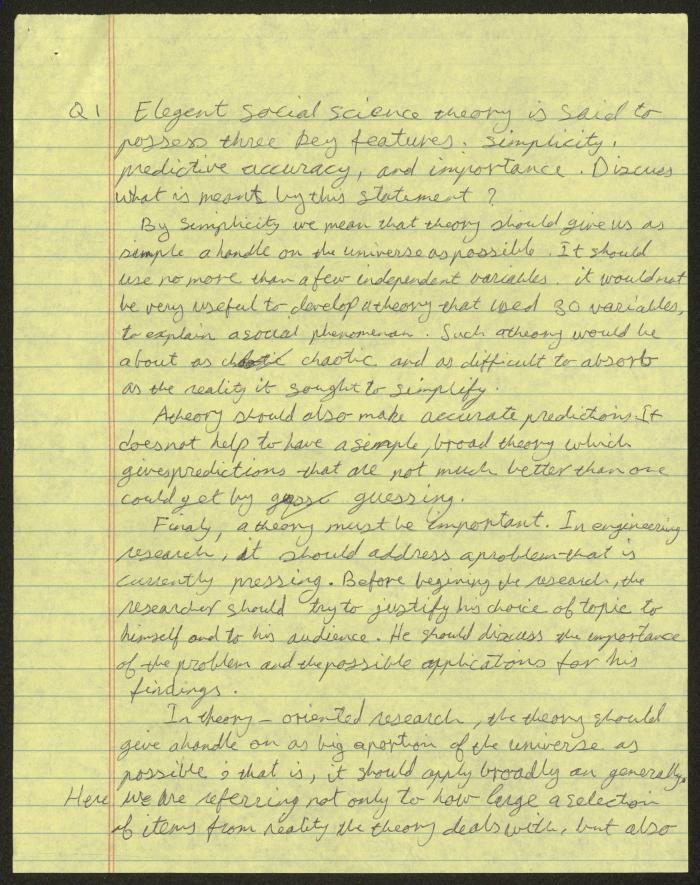 Q1 Elegent social science theory is said to
possess three key features. simplicity,
predictive accuracy, and importance. Discuss
what is meants by this statement?
By simplicity we mean that theory should give us as
simple a handle on the universe as possible. It should
use no more than a few independent variables. it would not
be very useful to develop a theory that used 30 variables,
to explain a social phenomenan. Such a theory would be
about as chaotic and as difficult to absorb
as the reality it sought to simplify.
A theory should also make accurate predictions. It
does not help to have a simple, broad theory which
gives predictions that are not much better than one
could get by guessing.
Finaly, a theory must be important. In engineering
research, it should address a problem that is
currently pressing. Before begining the research, the
researcher should try to justify his choice of topic to
himself and to his audience. He should discuss the importance
of the problem and the possible applications for his
findings.
In theory-oriented research, the theory should
give a handle on as big aportion of the universe as
possible; that is, it should apply broadly an generally.
Here we are referring not only to how large a selection
of items from reality the theory deals with, but also